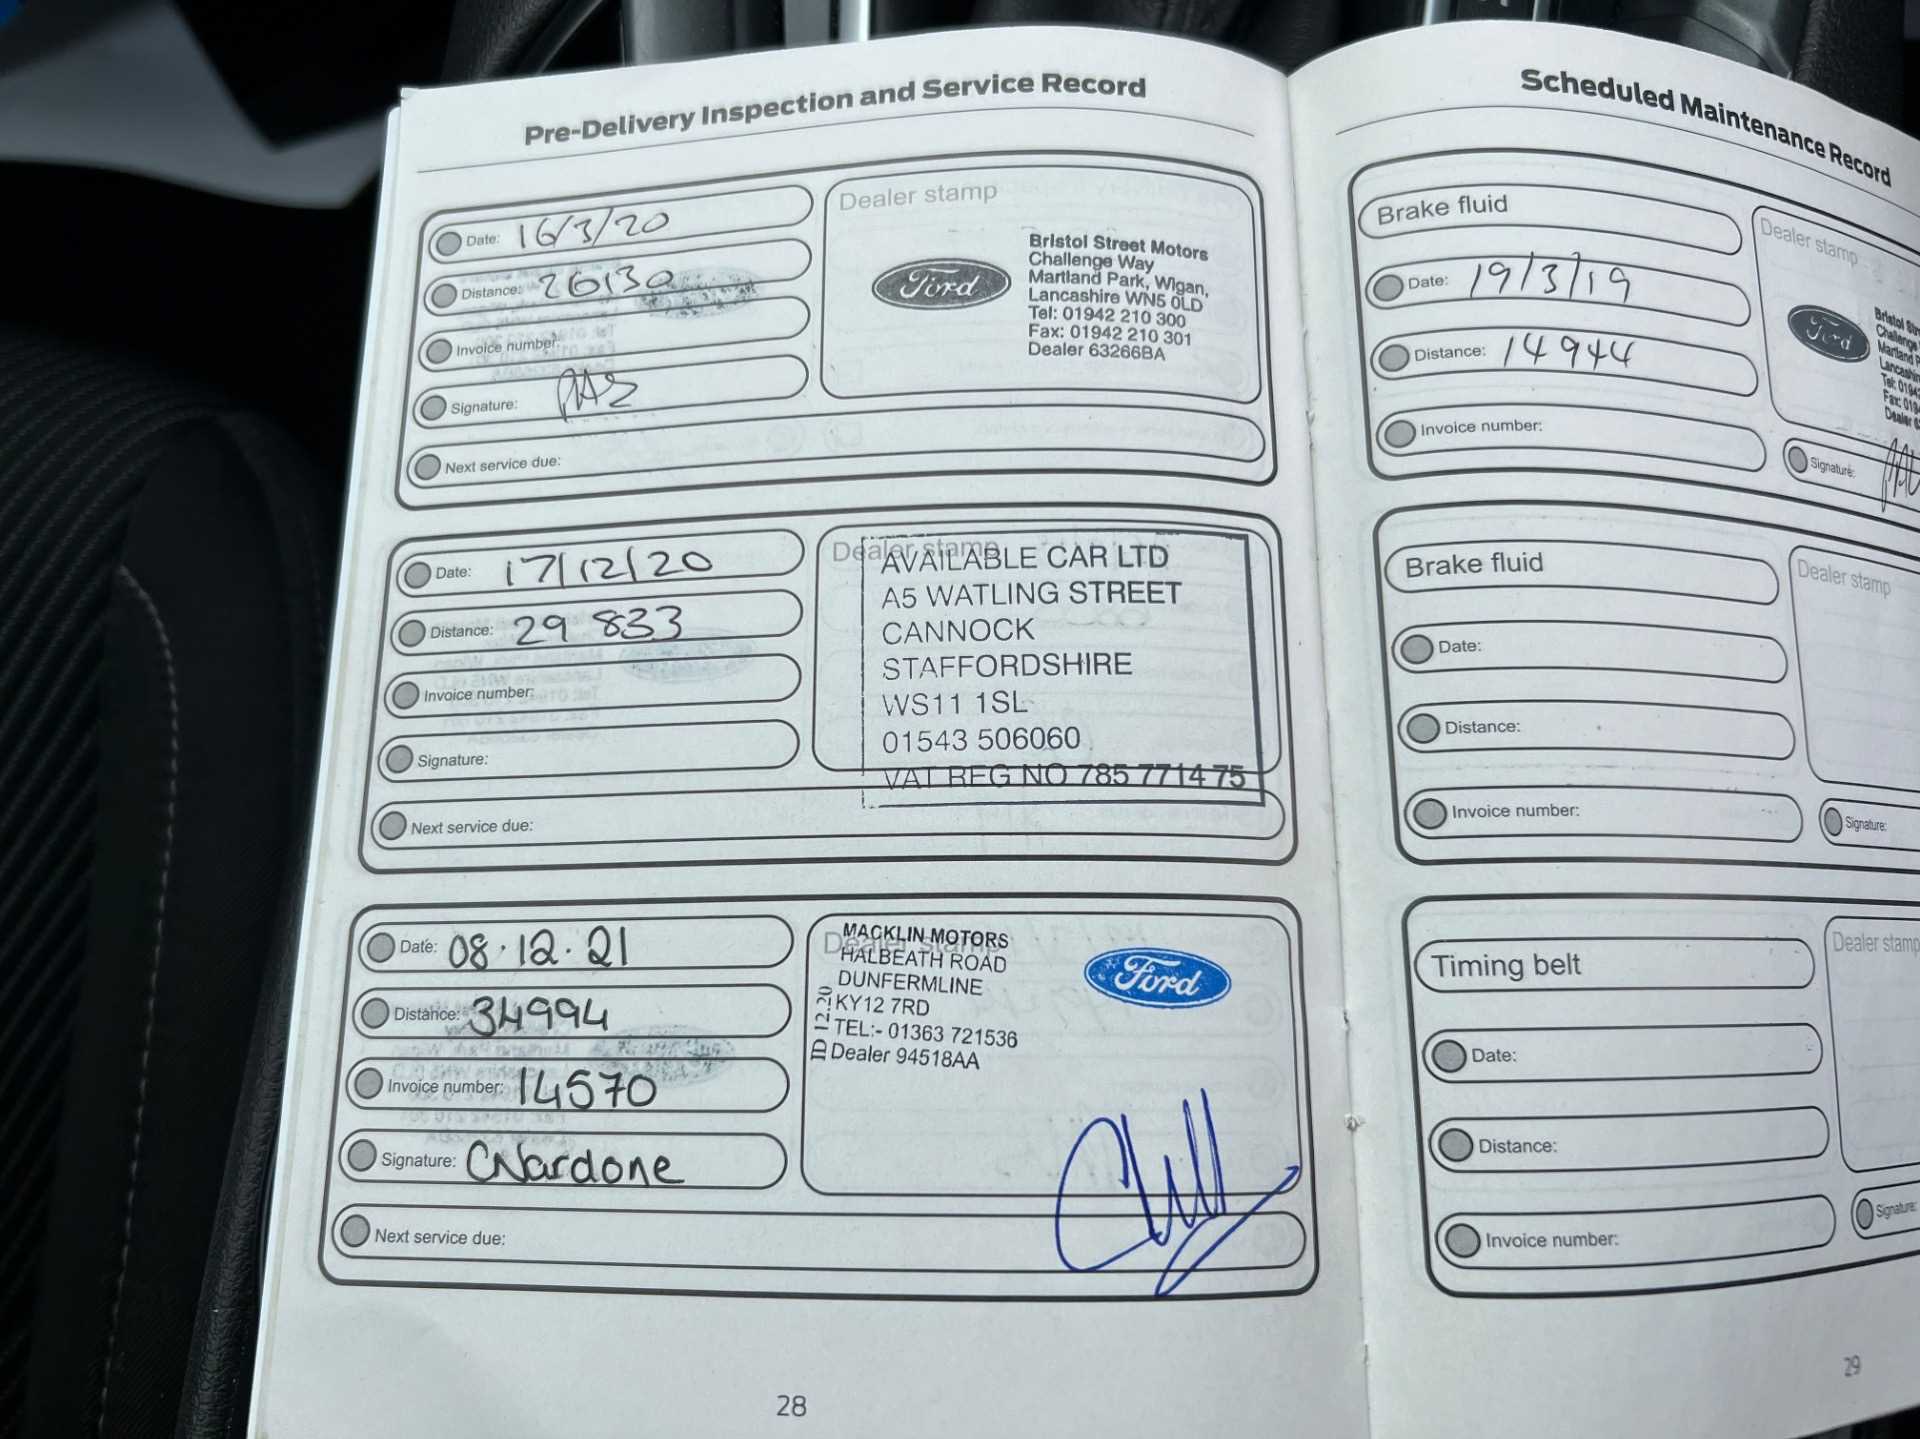 Pre-Delivery Inspection and Service Record
Date: 16/3/20
Distance: 26130
Invoice number:
Signature:
Next service due:
Dealer stamp
Ford
Bristol Street Motors
Challenge Way
Martland Park, Wigan,
Lancashire WN5 0LD
Tel: 01942 210 300
Fax: 01942 210 301
Dealer 63266BA
Date: 17/12/20
Distance: 29 833
Invoice number:
Signature:
Next service due:
Dealer stamp
AVAILABLE CAR LTD
A5 WATLING STREET
CANNOCK
STAFFORDSHIRE
WS11 1SL
01543 506060
VAT REG NO 785 7714 75
Date: 08.12.21
Distance: 34994
Invoice number: 14570
Signature: CNardone
Next service due:
Dealer stamp
MACKLIN MOTORS
HALBEATH ROAD
DUNFERMLINE
KY12 7RD
TEL:- 01363 721536
Dealer 94518AA
ID 12.20
Ford
28
Scheduled Maintenance Record
Brake fluid
Date: 19/3/19
Distance: 14944
Invoice number:
Dealer stamp
Ford
Bristol
Challenge
Signature:
Brake fluid
Date:
Distance:
Invoice number:
Dealer stamp
Signature:
Timing belt
Date:
Distance:
Invoice number:
Dealer stamp
Signature:
29